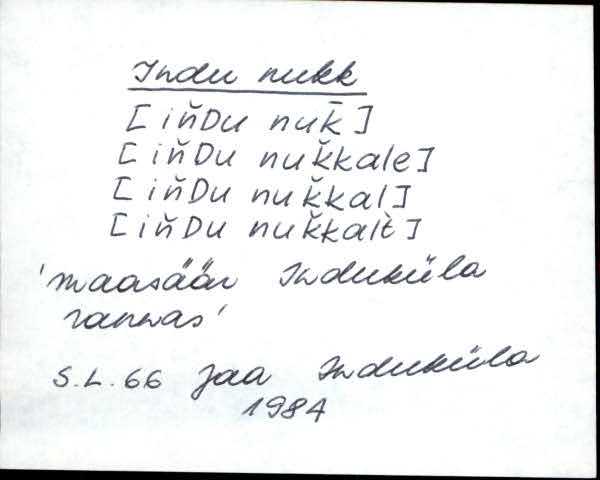 Indu nukk
[iňDu nuk̄]
[iňDu nuǩkale]
[iňDu nuǩkal]
[iňDu nuǩkalt̀]
'maasäär Induküla
rannas'
S.L. 66 Jaa Induküla
1984